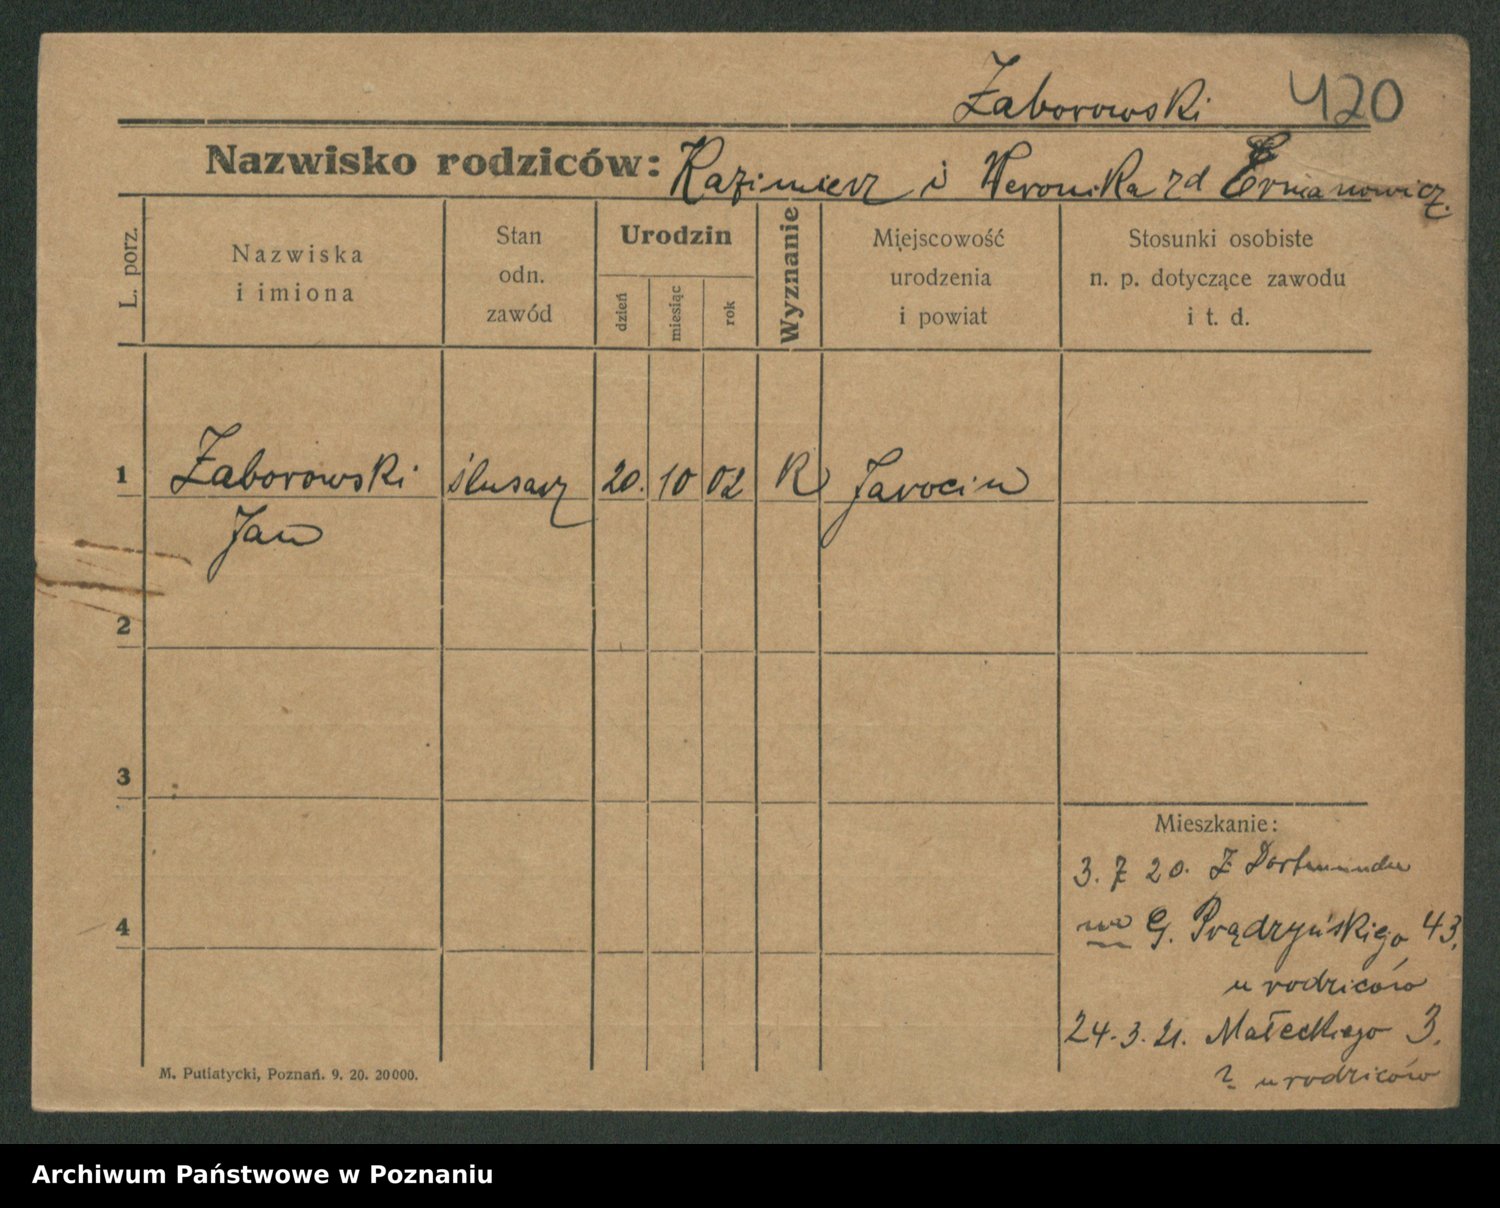 Zaborowski 420
Nazwisko rodziców: Kazimierz i Weronika zd Ermanowicz.
L. porz.
Nazwiska
i imiona
Stan
odn.
zawód
Urodzin
dzień
miesiąc
rok
Wyznanie
Miejscowość
urodzenia
i powiat
Stosunki osobiste
n. p. dotyczące zawodu
i t. d.
1 Zaborowski ślusarz 20. 10 02 K Jarocin
Jan
2
3
4
Mieszkanie:
3. 7 20. Z Dortmundu
G. Prądzyńskiego 43.
u rodziców
24. 3. 21. Małeckiego 3.
u rodziców
M. Putiatycki, Poznań. 9. 20. 20000.
Archiwum Państwowe w Poznaniu